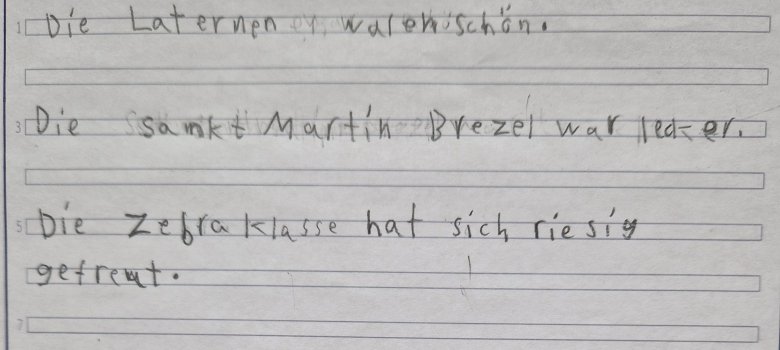 Die Laternen waren schön.
Die Sankt Martin Brezel war lecker.
Die Zebraklasse hat sich riesig
gefreut.